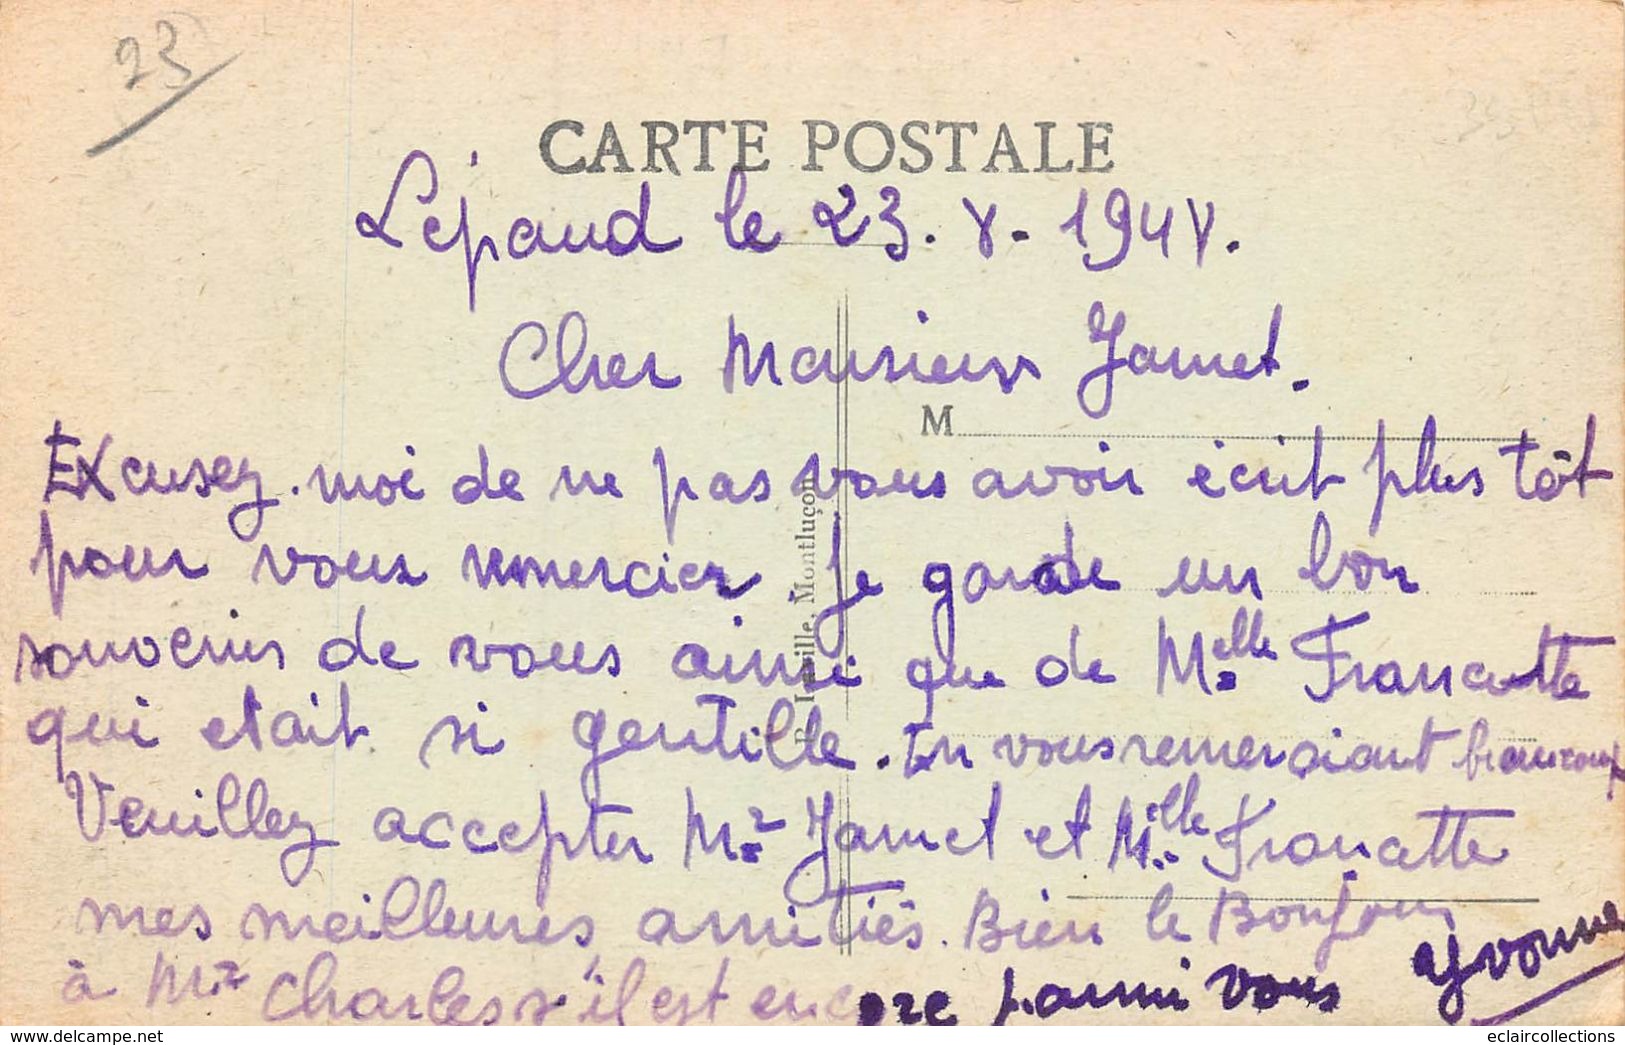 23
CARTE POSTALE
Lépaud le 23. 8. 1948.
Cher Monsieur Jamet.
M
Excusez. moi de ne pas vous avoir écrit plus tôt
pour vous remercier Je garde un bon
souvenirs de vous ainsi que de Melle Francette
qui etait si gentille. En vous remerciant beaucoup
Veuillez accepter Mr Jamet et Melle Francette
mes meilleures amitiés. Bien le Bonjour
à Mr Charles s'il est encore parmi vous Yvonne
Montluçon
www.delcampe.net
eclaircollections